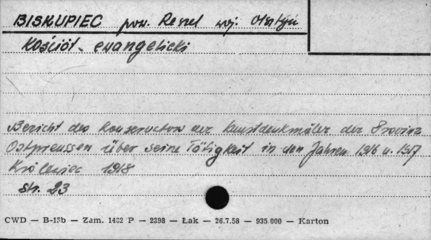 BISKUPIEC pow. Reszel woj. Olsztyn
Kościół - evangelicki
Bericht des Konservators der Kunstdenkmäler der Provinz
Ostpreussen über seine Tätigkeit in den Jahren 1916 u. 1917
Królewiec 1918
str. 23
CWD — B-15b — Zam. 1422 P — 2398 — Łak — 26.7.58 — 935.000 — Karton